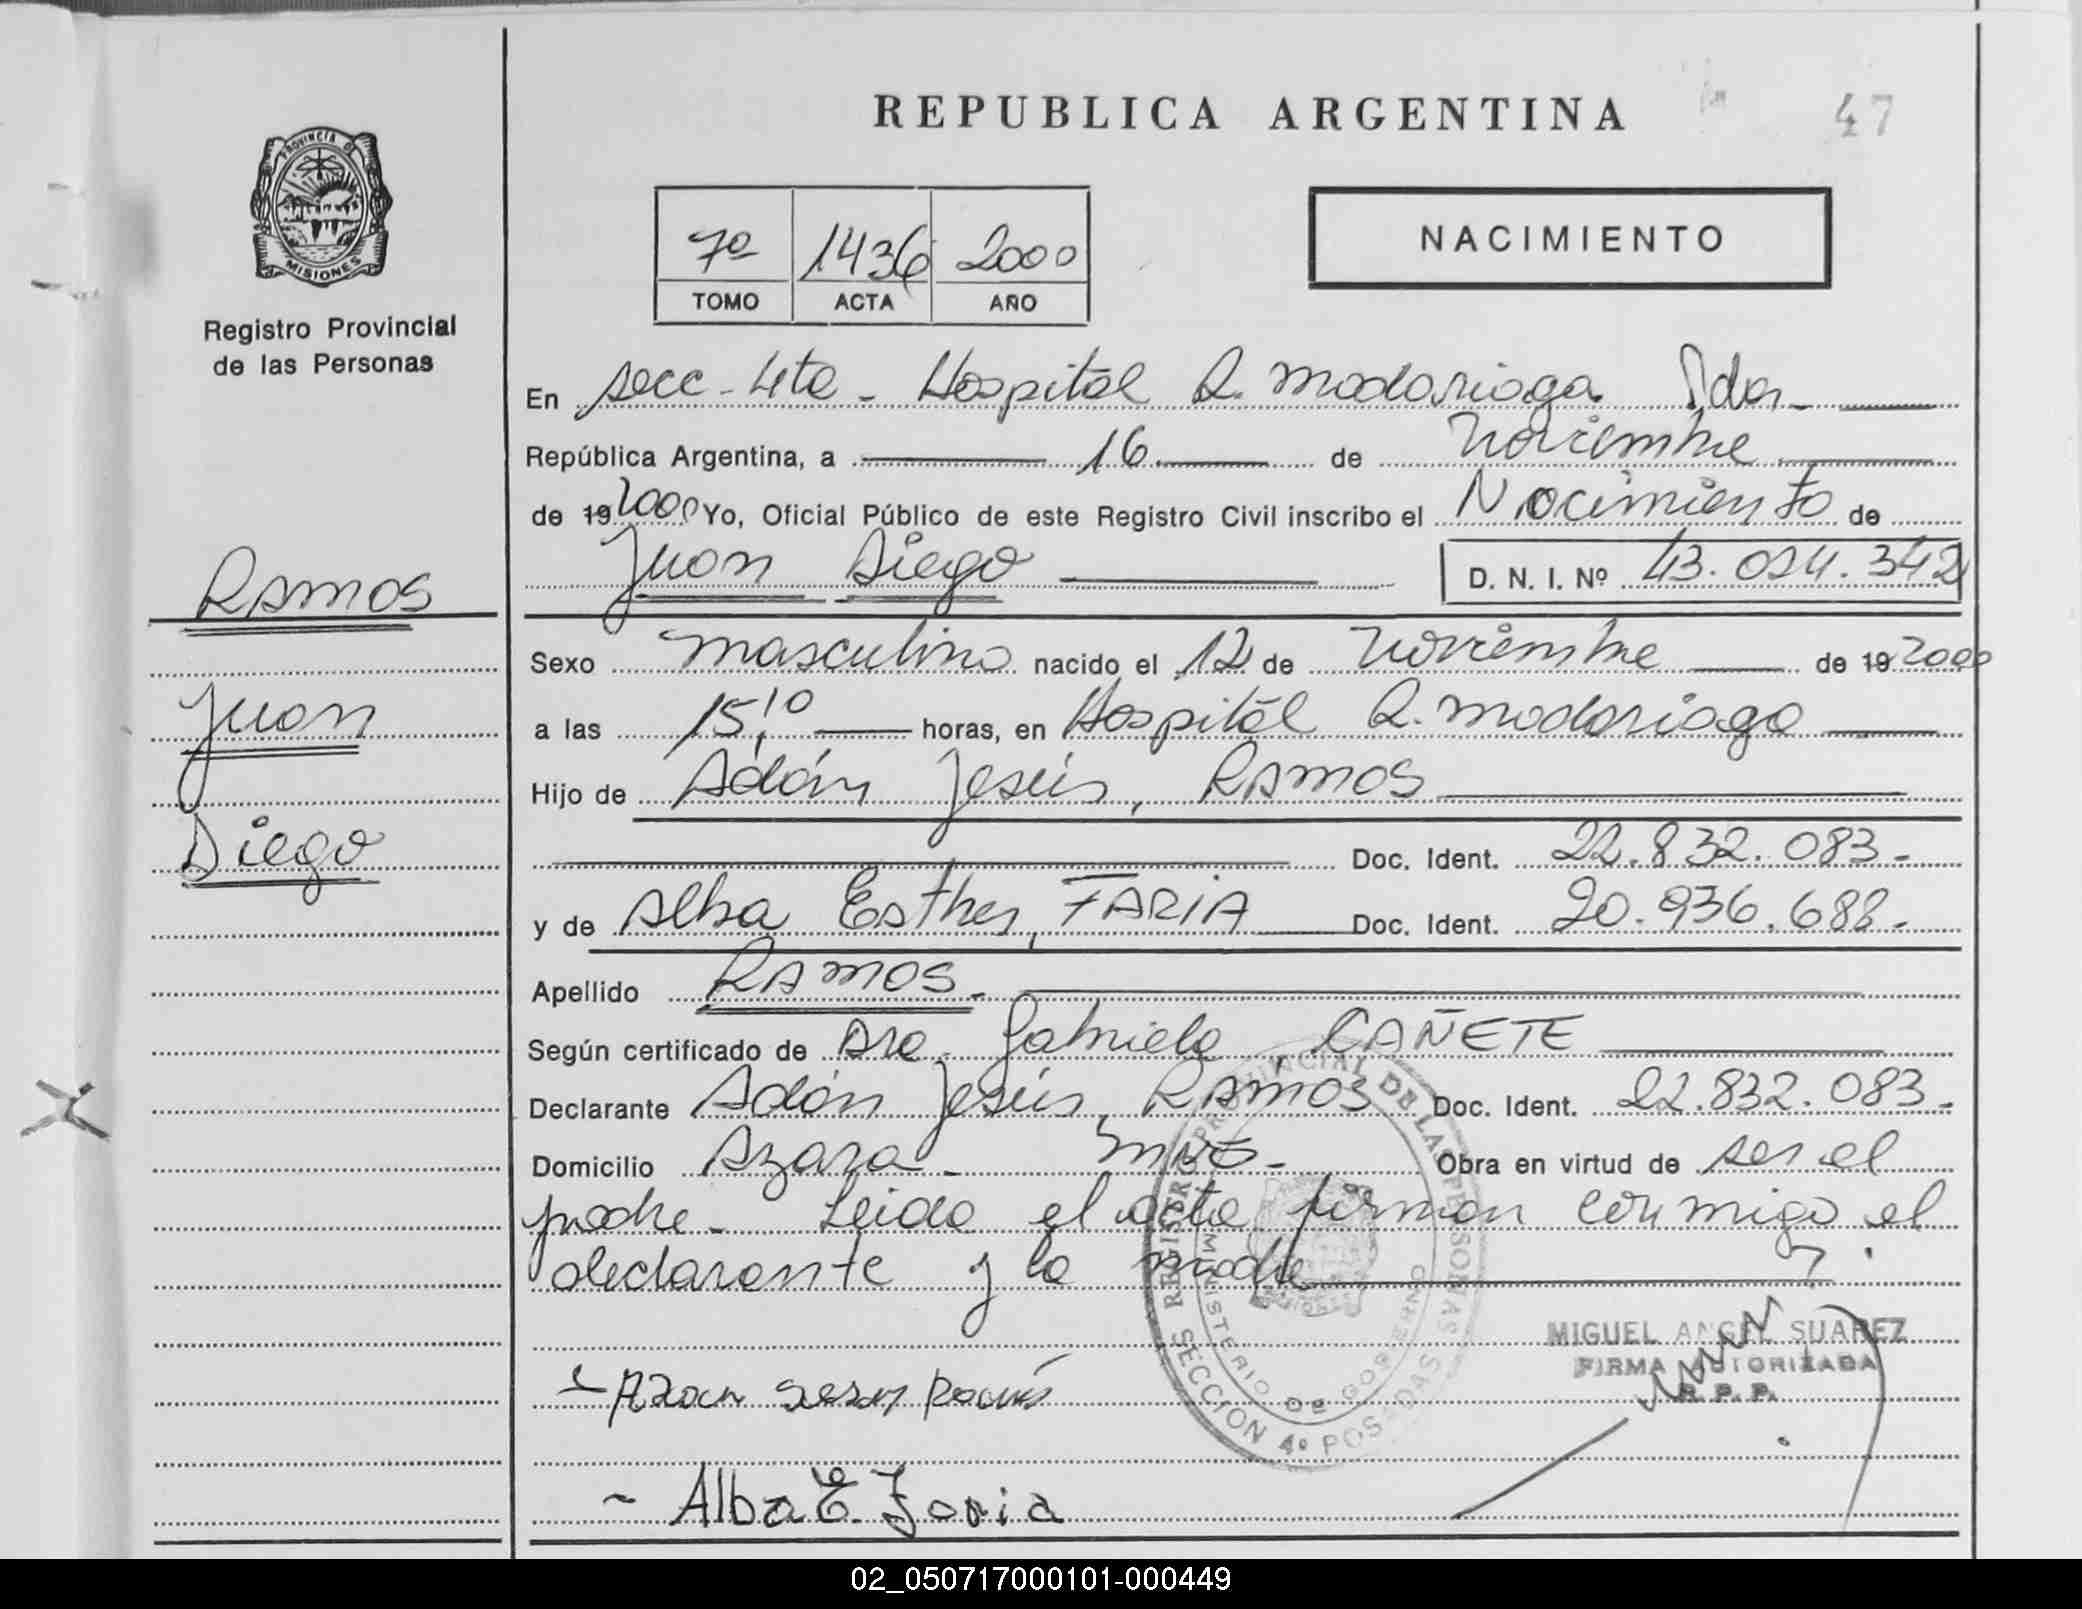 REPUBLICA ARGENTINA
47
PROVINCIA DE
MISIONES
Registro Provincial
de las Personas
7º 1436 2000
TOMO ACTA AÑO
NACIMIENTO
En secc - 4ta - Hospital R. Madariaga Pdas -
República Argentina, a 16 de Noviembre
de 19 2000 Yo, Oficial Público de este Registro Civil inscribo el Nacimiento de
Juan Diego D. N. I. Nº 43.014.342
RAMOS
Juan
Diego
Sexo masculino nacido el 12 de Noviembre de 19 2000
a las 15,10 horas, en Hospital R. Madariaga
Hijo de Adán Jesús, RAMOS
Doc. Ident. 22.832.083.-
y de Alba Esther, FARIA Doc. Ident. 20.936.688.-
Apellido RAMOS.-
Según certificado de Dra. Gabriela, CAÑETE
Declarante Adán Jesús, RAMOS Doc. Ident. 22.832.083.-
Domicilio Azara - Mnes - Obra en virtud de ser el
padre - Leida el acta firman conmigo el
declarante y la madre
REGISTRO PROVINCIAL DE LAS PERSONAS
MINISTERIO DE GOBIERNO
SECCION 4º POSADAS
MIGUEL ANGEL SUAREZ
FIRMA AUTORIZADA
R. P. P.
- Adan Jesus Ramos
- Alba E. Faria
02_050717000101-000449